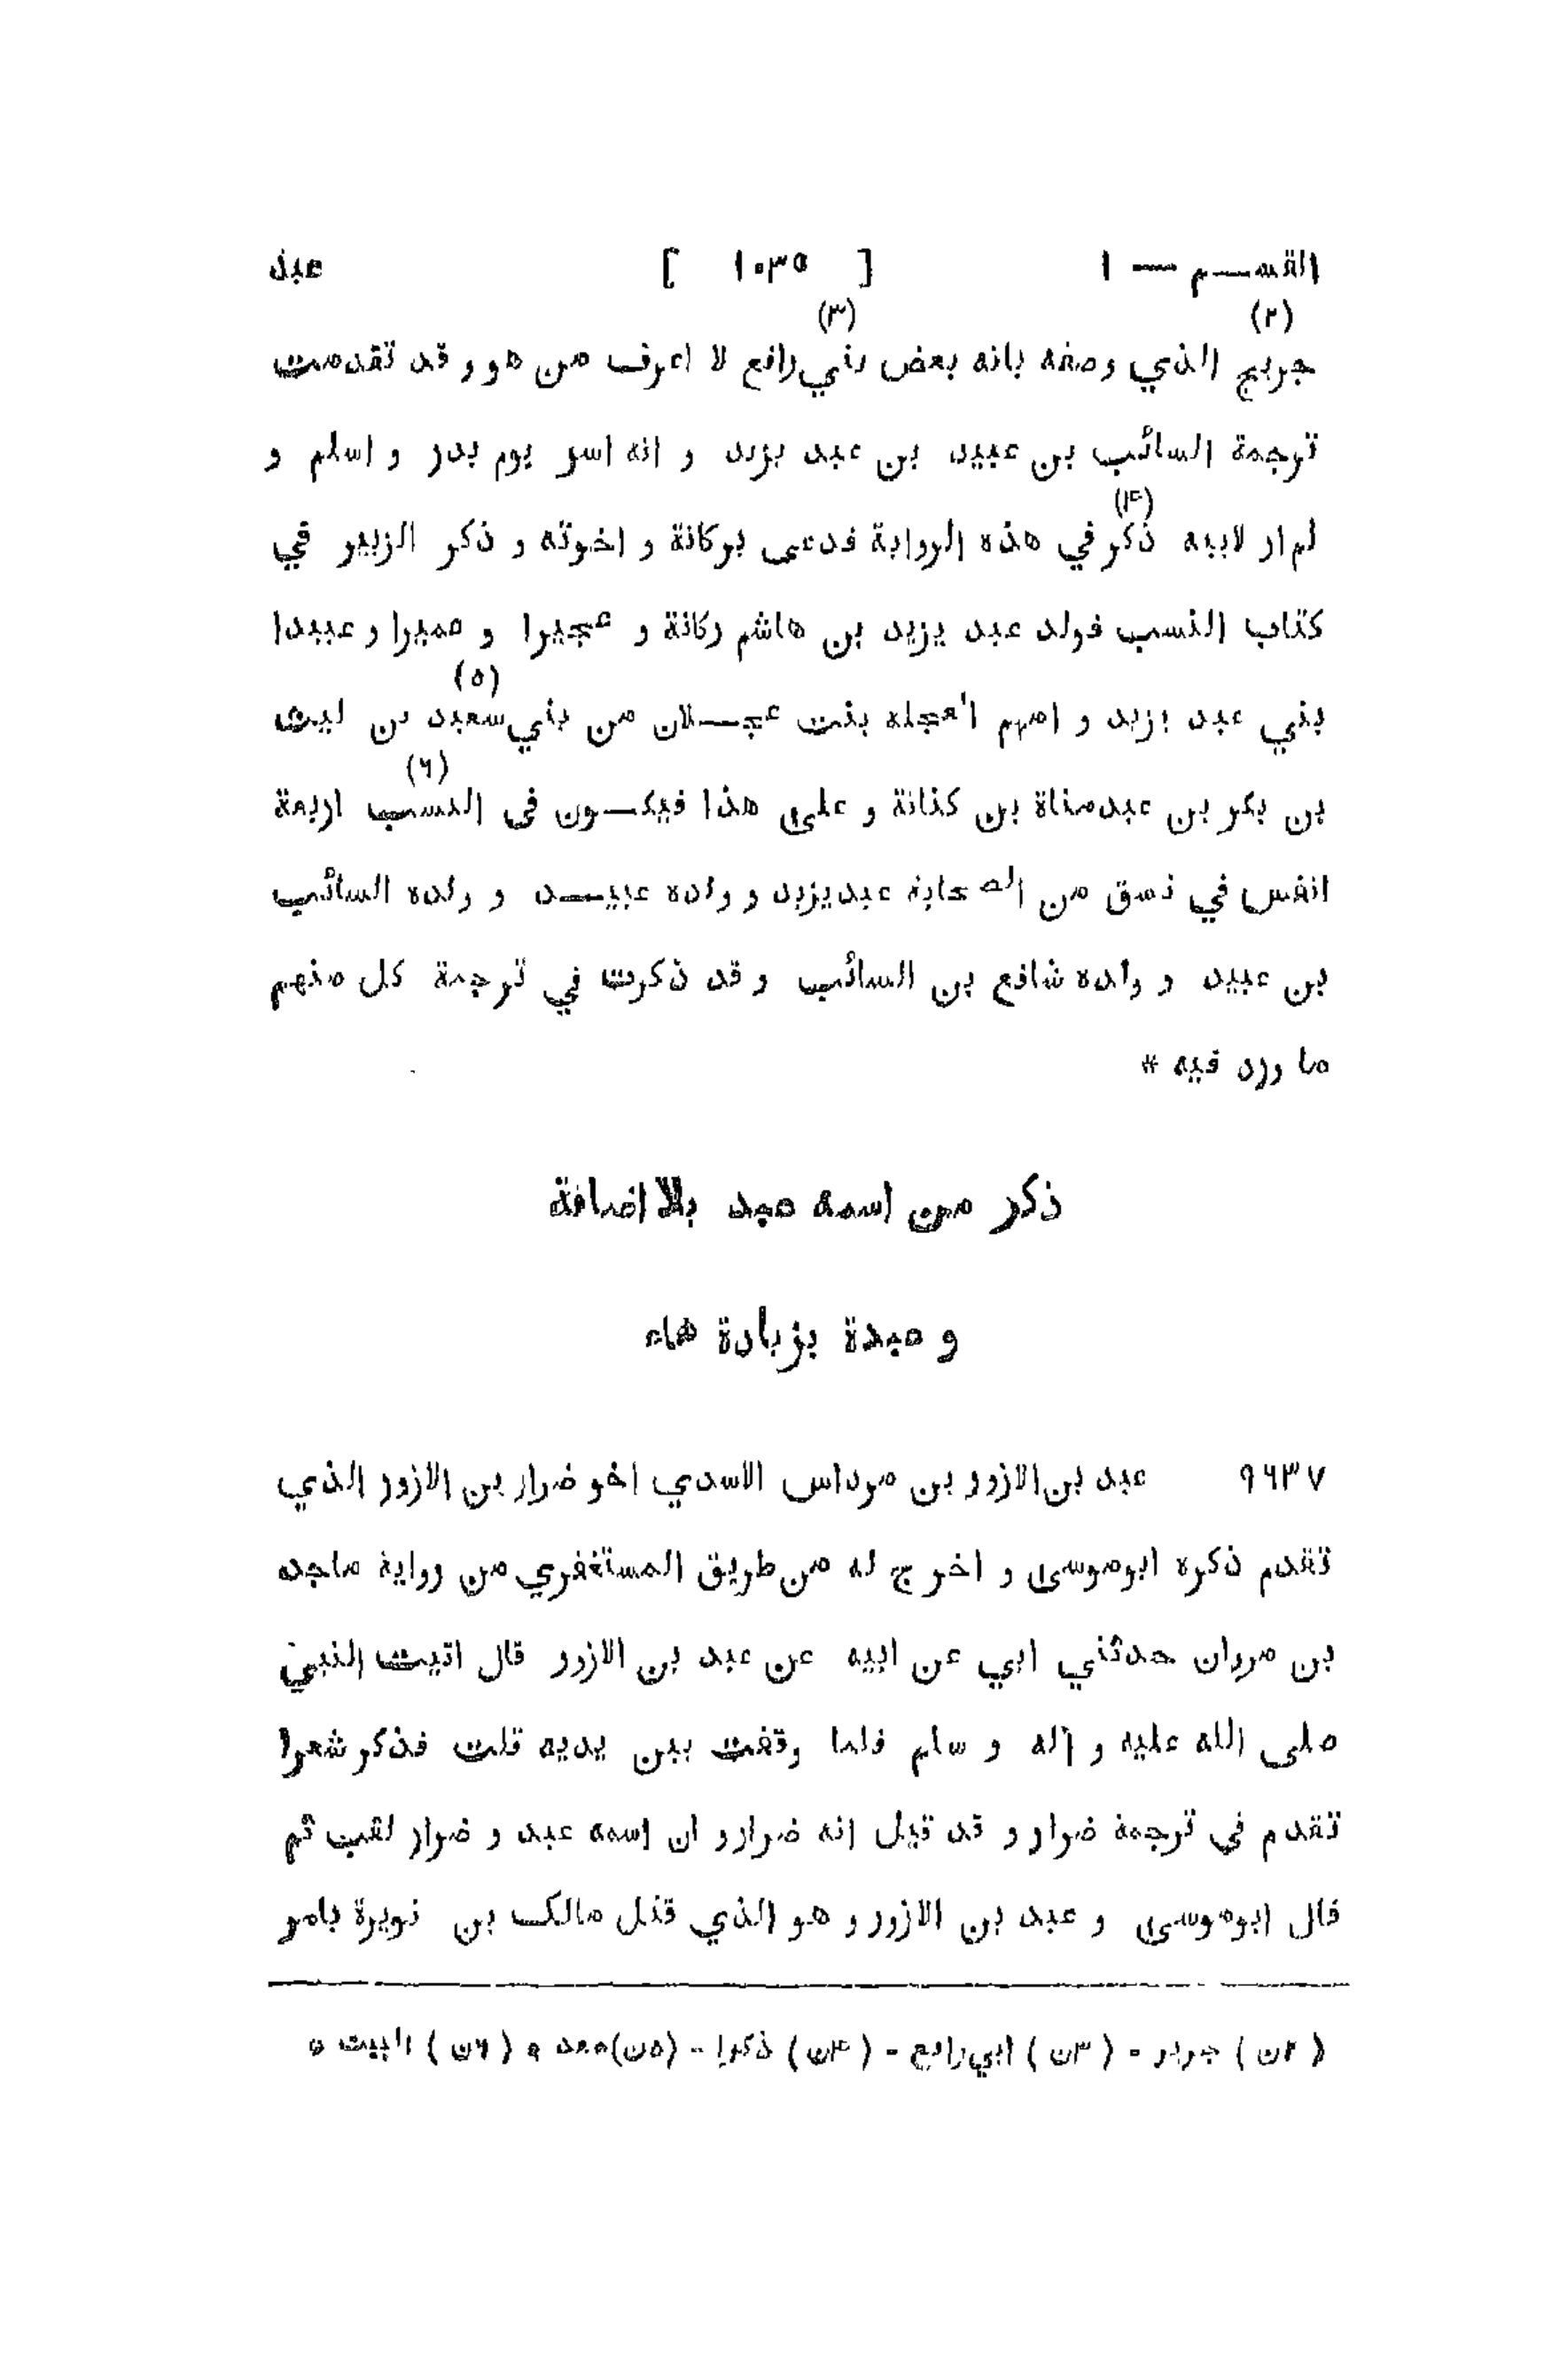 القسم — ١ [ ١٠٣٥ ] عبد
(٢) (٣)
جريج الذي وصفه بانه بعض بني رافع لا اعرف من هو و قد تقدمت
ترجمة السائب بن عبيد بن عبد يزيد و انه اسر يوم بدر و اسلم و
(۴)
لم ار لابيه ذكر في هذه الرواية فدعى بركانة و اخوته و ذكر الزبير في
كتاب النسب فولد عبد يزيد بن هاشم ركانة و عجيرا و عميرا و عبيدا
(٥)
بني عبد يزيد و امهم العجله بنت عجلان من بني سعيد بن ليث
(٦)
بن بكر بن عبد مناة بن كنانة و على هذا فيكون في النسب اربعة
انفس في نسق من الصحابة عبد يزيد و ولده عبيد و ولده السائب
بن عبيد و ولده شافع بن السائب و قد ذكرت في ترجمة كل منهم
ما ورد فيه *
ذكر من اسمه عبد بلا اضافة
و عبدة بزيادة هاء
٩٦٣٧ عبد بن الازور بن مرداس الاسدي اخو ضرار بن الازور الذي
تقدم ذكره ابوموسى و اخرج له من طريق المستغفري من رواية ماجد
بن مروان حدثني ابي عن ابيه عن عبد بن الازور قال اتيت النبي
صلى الله عليه و آله و سلم فلما وقفت بين يديه قلت فذكر شعرا
تقدم في ترجمة ضرار و قد قيل انه ضرار و ان اسمه عبد و ضرار لقب ثم
قال ابوموسى و عبد بن الازور و هو الذي قتل مالك بن نويرة بامر
( ٢ن ) جرير - ( ٣ن ) ابي رافع - ( ۴ن ) ذكرا - (٥ن) سعد * ( ٦ن ) البيت *